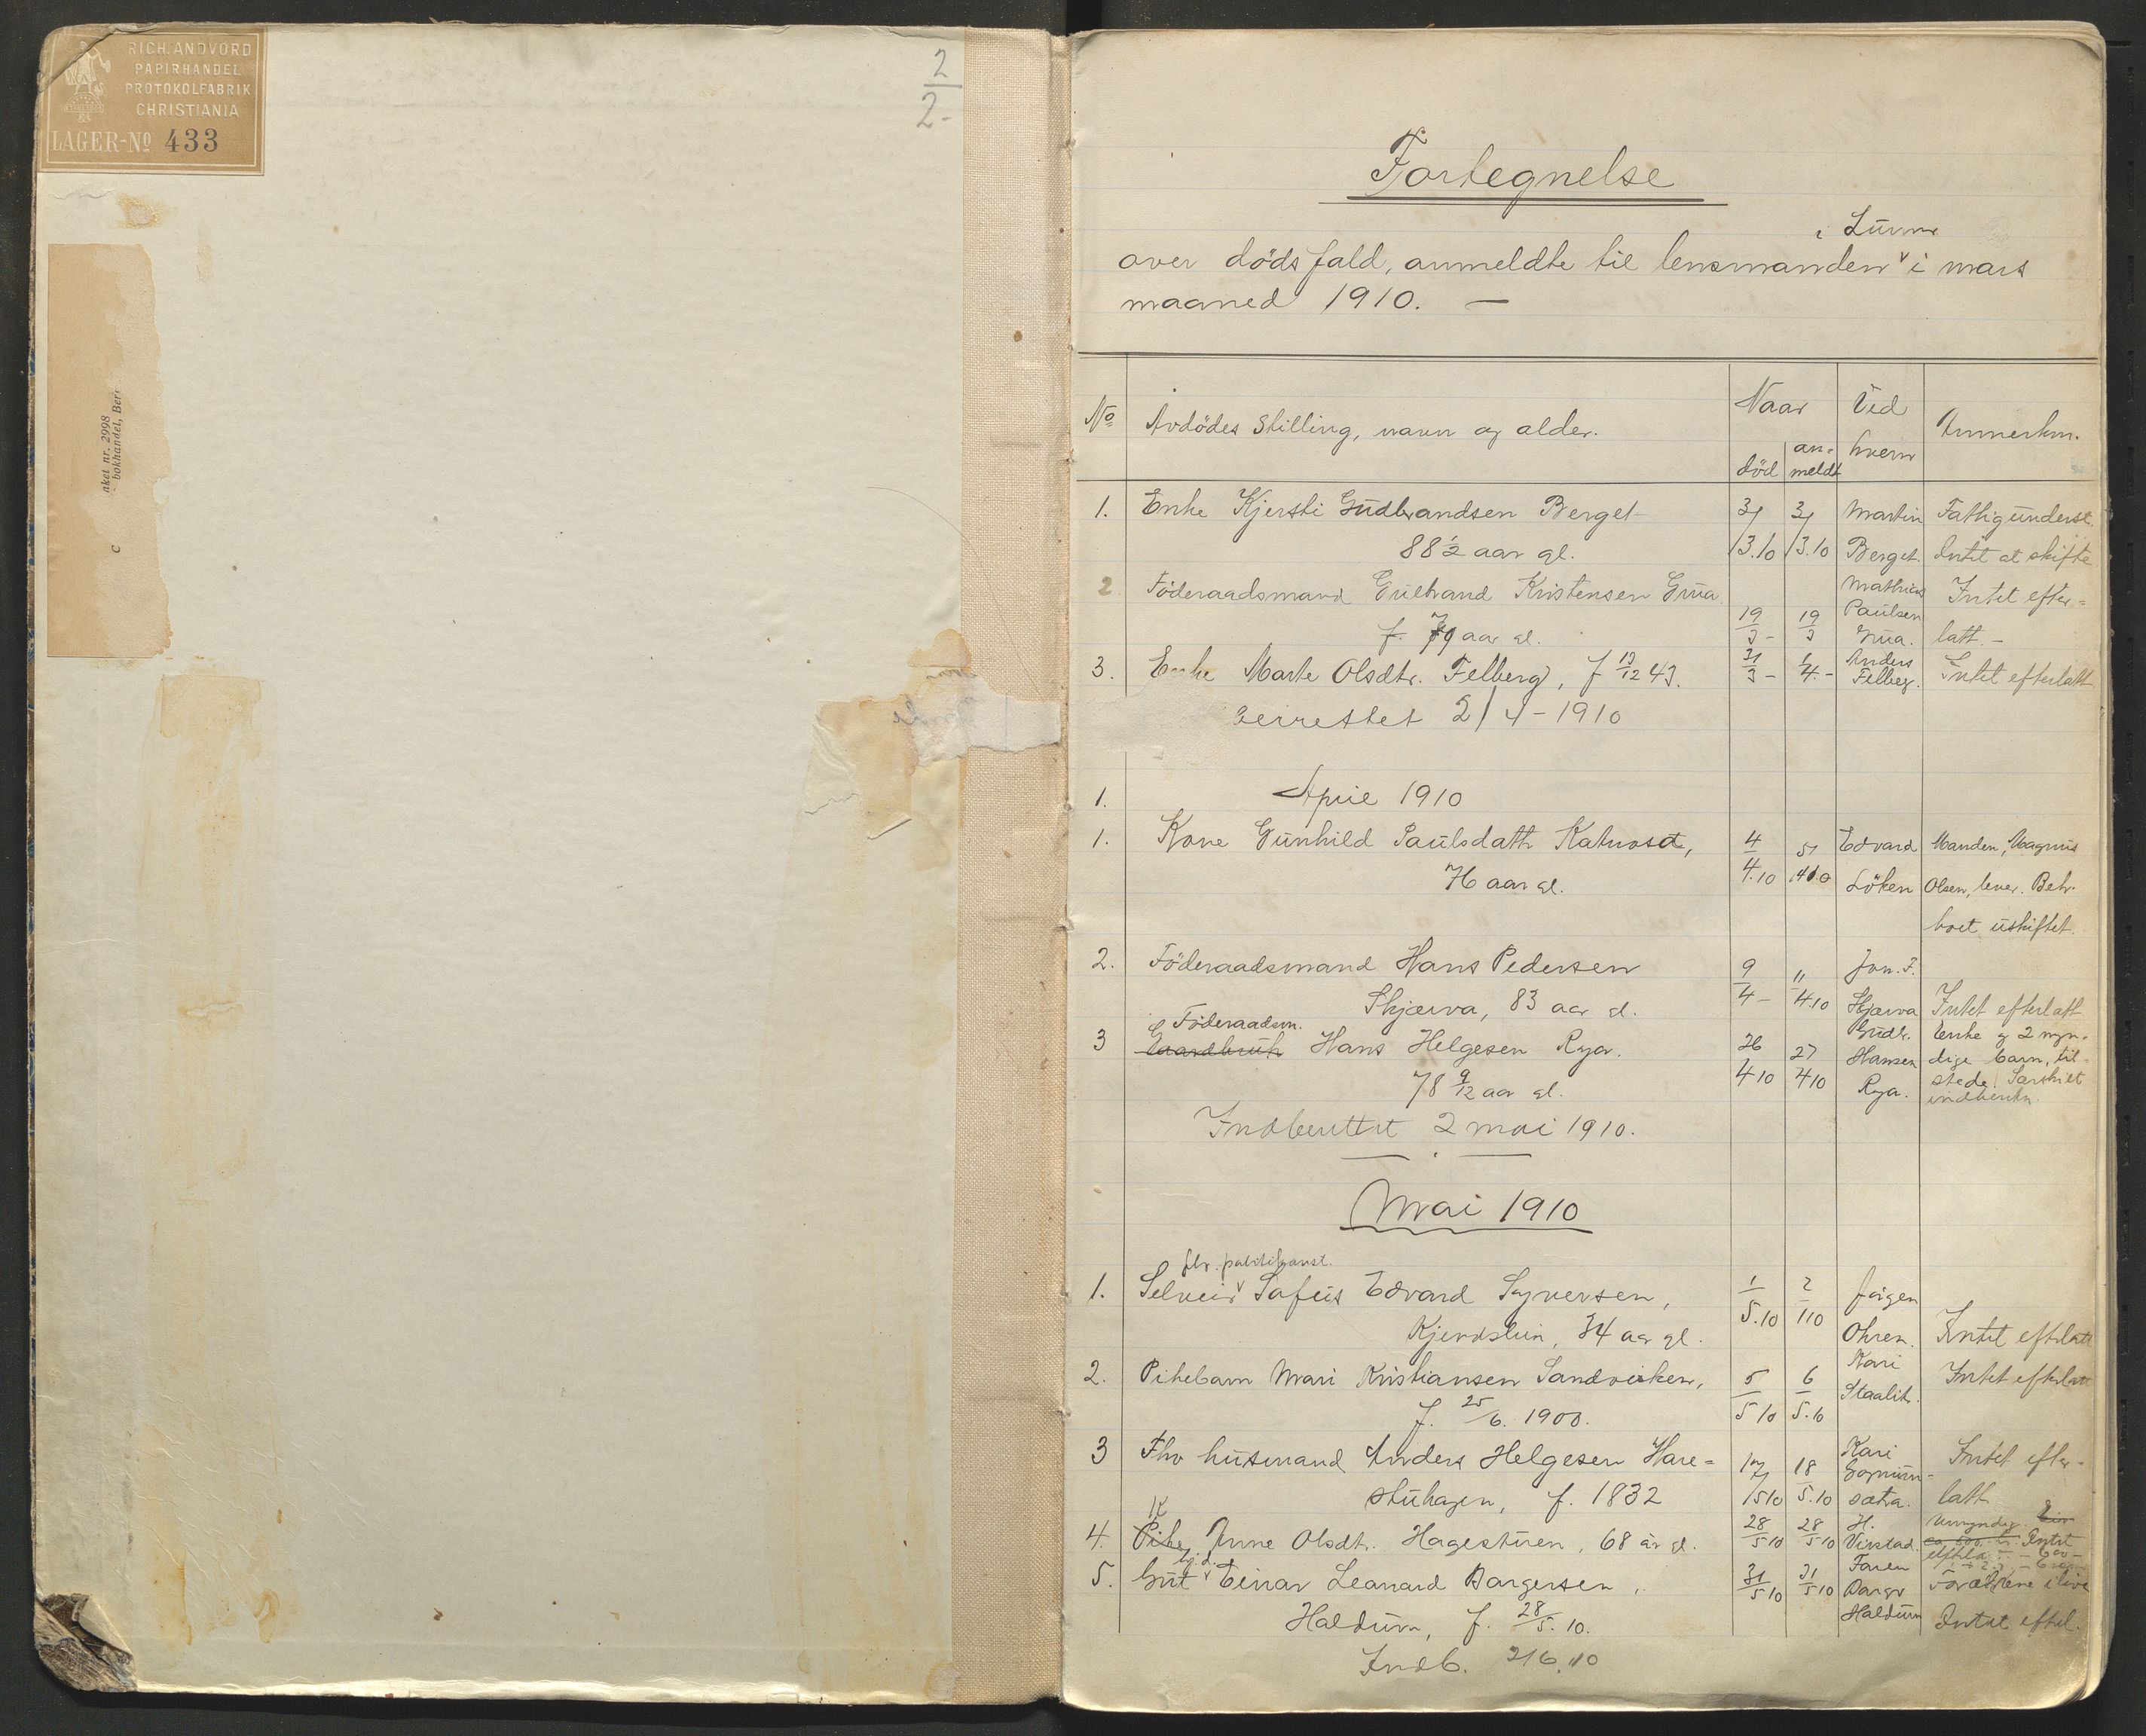 RICH. ANDVORD
PAPIRHANDEL
PROTOKOLFABRIK
CHRISTIANIA
LAGER-No 433
2
2-
aket nr. 2998
bokhandel, Ber
Fortegnelse
i Lunner
over dödsfald, anmeldte til lensmanden v i mars
maaned 1910. —
No Avdödes stilling, navn og alder. Naar Ved Anmerkn.
död an= meldt hvem
1. Enke Kjersti Gudbrandsen Berget 3/ 3/ Martin Fattigunderst.
88 1/2 aar gl. /3.10 /3.10 Berget. Intet at skifte
2 Föderaadsmand Gulbrand Kristensen Grua Mathias Intet efter=
f. 79 aar gl. 19/3- 19/3 Paulsen Grua. latt -
3. Enke Marte Olsdtr. Felberg, f 19/12 43. 31/3- /4- Anders Felberg. Intet efterlatt
2/4-1910
1. April 1910
1. Kone Gunhild Paulsdatt. Katnosa, 4 5/ Edvard Manden, Magnus
76 aar gl. 4.10 410 Löken Olsen, lever. Beh.
boet uskiftet.
2. Föderaadsmand Hans Pedersen 9 11 Jon. F.
Skjærva, 83 aar gl. 4- 410 Skjærva Intet efterlatt
Föderaadsm.
3 Gaardbruk Hans Helgesen Rya. 26 27 Gudb. Hansen Enke og 2 myn= dige barn, til=
78 9/12 aar gl. 410 410 Rya. stede. Særskilt indberetn.
Indberettet 2 mai 1910.
Mai 1910
flv. politikonst.
1. Selveier v Sofus Edvard Syversen, 1 2 Jörgen
Kjendslien, 34 aar gl. 5.10 110 Ohren. Intet efterlatt
2. Pikebarn Mari Kristiansen Sandviken, 5 6 Kari Intet efterlatt
f. 25/6. 1900. 5 10 5.10 Staalit.
3 Fhv husmand Anders Helgesen Hare= 17/ 18 Kari Intet efter-
stuhagen, f. 1832 /510 5.10 sætra. latt
4. Pike Anne Olsdt. Hagestuen, 68 år gl. 28/5 10 28/5 10 H. Virstad. Umyndig. Intet
5. Gut v Einar Leonard Borgersen, 31/5 10 31/5 10 Faren Borger Forældrene i live
Haldum, f. 28/5. 10. Haldum Intet eftl.
Indb. 2/6.10